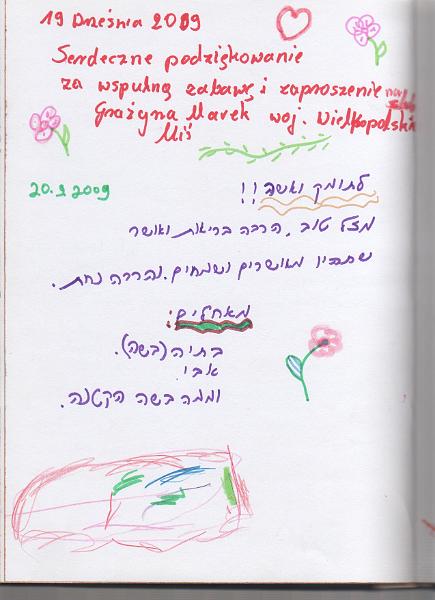 19 Września 2009
Serdeczne podziękowanie
za wspulną zabawę i zaproszenie na ślub
Grażyna Marek woj. Wielkopolskie
Miś
20.9.2009
לתומק ואשה!!
מזל טוב, הרבה בריאות ואושר
שתהיו מאושרים ושמחים. והרבה נחת.
מאחלים:
בתיה (בשה).
אבי
וממה בשה הקטנה.